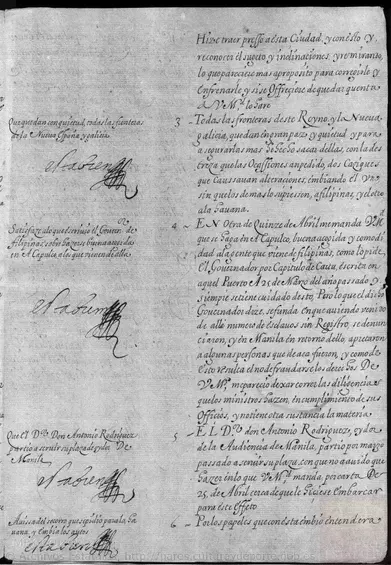 Hize traer presso a esta Ciudad, y con esto ex
reconocer el sujeto y inclinaciones, y re mirar to
lo que pareciere mas aproposito para corregirlo y
Enfrenarle y si se Offreciere de que dar quenta
A V. Mg.d lo hare
Que quedan con quietud, todas las fronteras
de la Nueva España y galicia
3 - Todas las fronteras deste Reyno, y la Nueva
galicia, quedan en gran paz y quietud y para
asegurarlas mas he hecho sacar dellas, con la des
treza que las Ocassiones an pedido, dos Caziques
que Caussavan alteraciones, embiando el Un
sin que los demas lo supiesen, a filipinas, y el otro
a la Havana.
Satisfaze a lo que escrivio el Governor de
filipinas sobre hazerse buena acogida
en Acapulco a los que vienen de alla
4 - EN Otra de Quinze de Abril me manda V. Mg.d
que se haga en Acapulco, buena acogida y comodi
dad a la gente que viene de filipinas, como lo pide
El Governador por Capitulo de Carta, escrita en
aquel Puerto A 15 de Março del año passado y
siempre se tiene cuidado desto, Pero lo que el dicho
Governador dize, se funda en que aviendo venido
de alla numero de Esclavos sin Registro, se denun
ciaron, y en Manila en retorno dello, apretaron
a algunas personas que de aca fueron, y como de
Esto resulta el no defraudarse los derechos De
V. Mg.d me parecio dexar correr las diligencias
que los ministros hazen, en cumplimiento de sus
Officios, y no tiene otra sustancia la materia
Que el D.or Don Antonio Rodriguez
partio a servir su plaza de oydor De
Manila
5 - EL D.or don Antonio Rodriguez, oydor
de la Audiencia de Manila, partio por março
passado a servir su plaza, con que no a avido que
hazer en lo que V. Mg.d manda por carta De
25, de Abril cerca de que le hiciese Embarcar
para este Effeto
Avisa del
vana, y embia los autos
6 - Por los papeles que con esta embio entendera